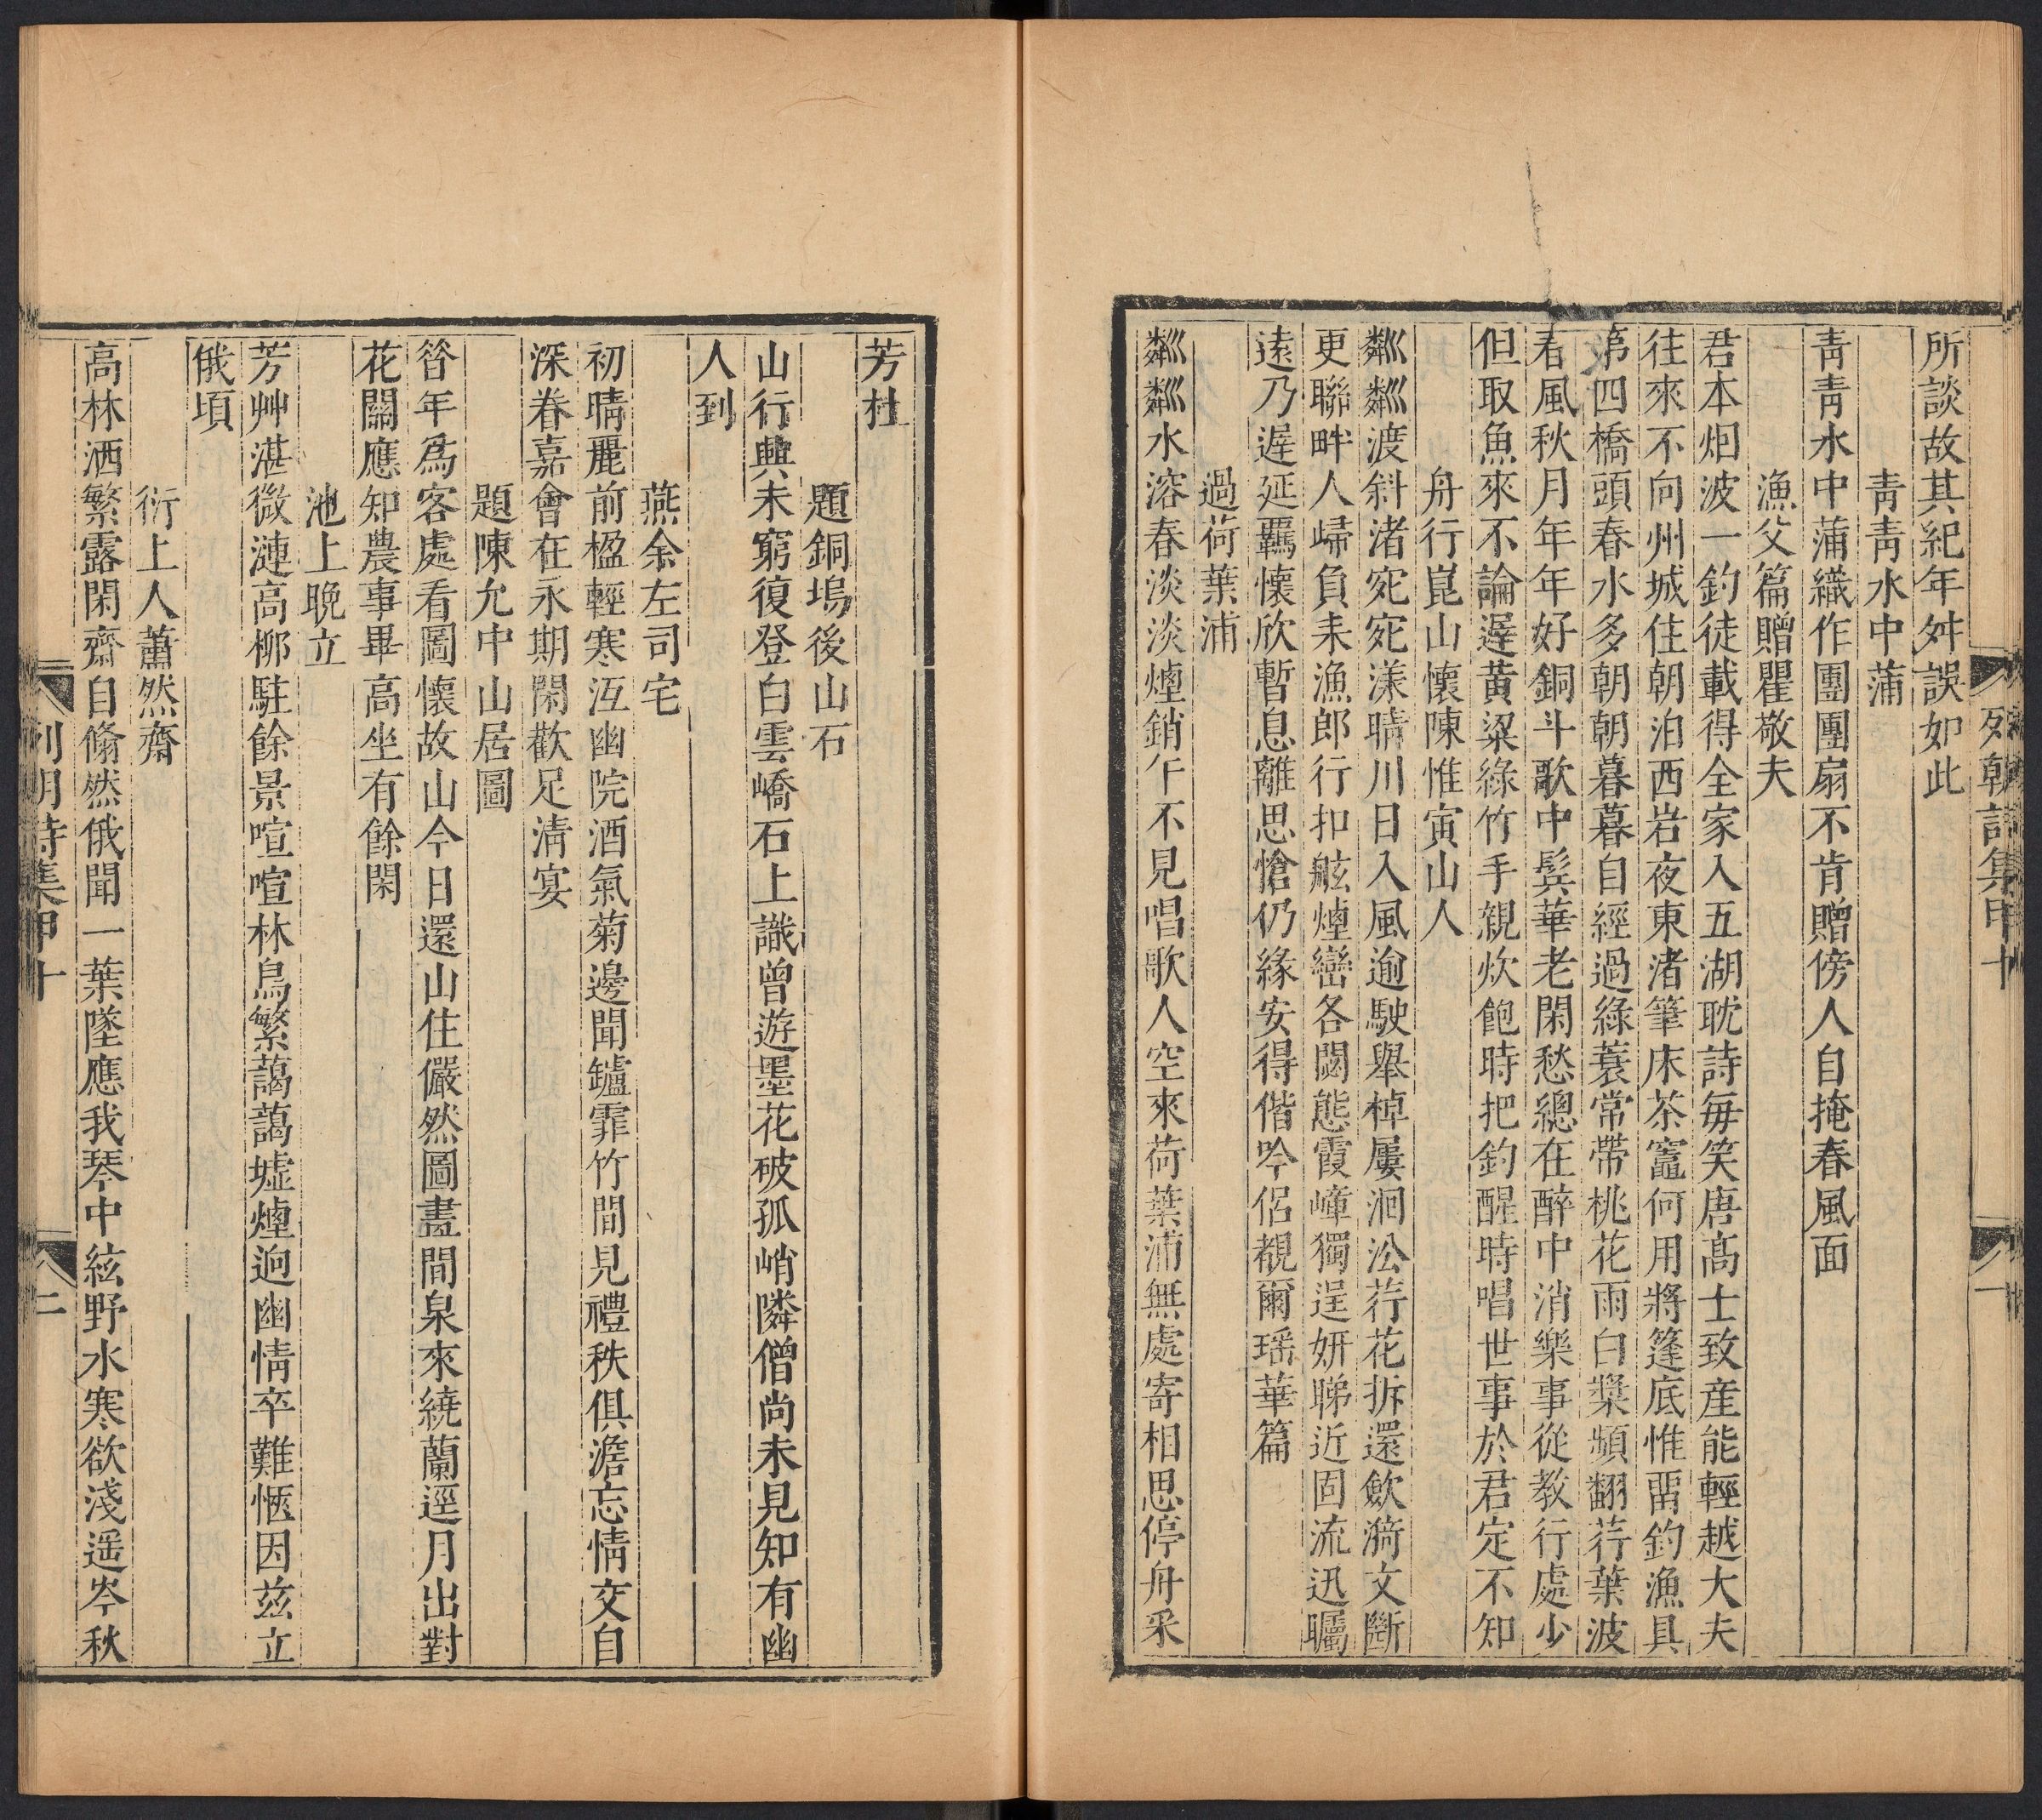 列朝詩集甲十
一
所談故其紀年舛誤如此
青青水中蒲
青青水中蒲織作團團扇不肯贈傍人自掩春風面
漁父篇贈瞿敬夫
君本烟波一釣徒載得全家入五湖耽詩每笑唐高士致産能輕越大夫
往來不向州城住朝泊西岩夜東渚筆床茶竈何用將篷底惟畱釣漁具
第四橋頭春水多朝朝暮暮自經過綠蓑常帶桃花雨白槳頻翻荇葉波
春風秋月年年好銅斗歌中鬂華老閑愁總在醉中消樂事從教行處少
但取魚來不論遅黃粱綠竹手親炊飽時把釣醒時唱世事於君定不知
舟行崑山懷陳惟寅山人
粼粼渡斜渚宛宛漾晴川日入風逾駛舉棹屢洄沿荇花拆還歛漪文斷
更聯畔人歸負耒漁郎行扣舷煙巒各閟態霞嶂獨逞妍睇近固流迅矚
遠乃遅延羈懷欣暫息離思愴仍緣安得偕吟侶覯爾瑶華篇
過荷葉浦
粼粼水溶春淡淡煙銷午不見唱歌人空來荷葉浦無處寄相思停舟采
芳杜
題銅塢後山石
山行興未窮復登白雲嶠石上識曾遊墨花破孤峭隣僧尚未見知有幽
人到
燕余左司宅
初晴麗前楹輕寒沍幽院酒氣菊邊聞鑪霏竹間見禮秩俱澹忘情交自
深眷嘉會在永期閑歡足清宴
題陳允中山居圖
昝年爲客處看圖懷故山今日還山住儼然圖畫間泉來繞蘭逕月出對
花關應知農事畢高坐有餘閑
池上晚立
芳艸湛微漣高柳駐餘景喧喧林鳥繁藹藹墟煙逈幽情卒難愜因兹立
俄頃
衍上人蕭然齋
高林洒繁露閑齋自翛然俄聞一葉墜應我琴中絃野水寒欲淺遥岑秋
列朝詩集甲十
二